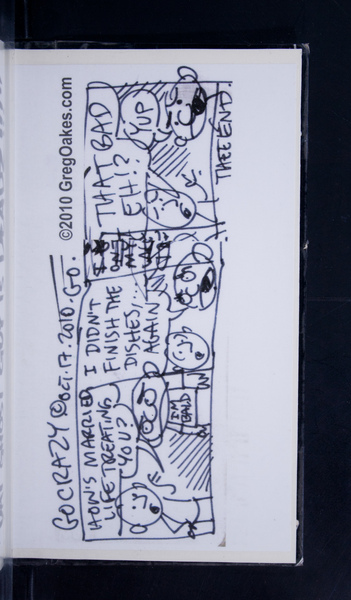 GOCRAZY © OCT. 17. 2010. G.O.
HOW'S MARRIED
LIFE TREATING
YOU?
I'M
BALD
I DIDN'T
FINISH THE
DISHES...
AGAIN
THAT BAD
EH!?
YUP
THEE END.
©2010 GregOakes.com